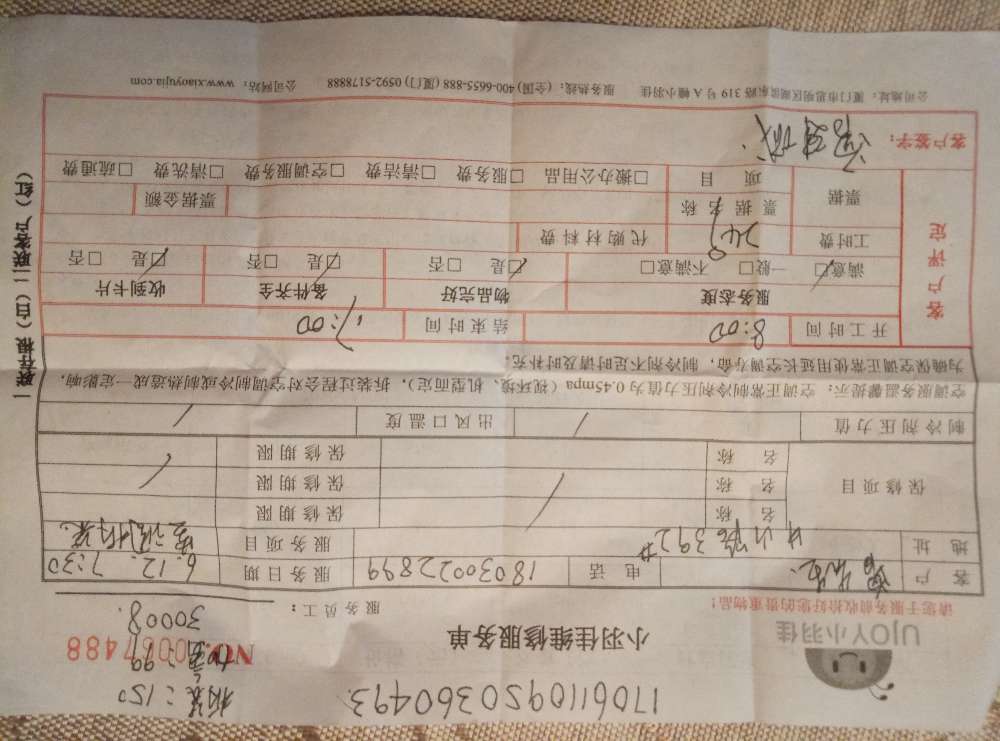 1706110950360493
拆装：150
加氟：99
UJOY小羽佳
小羽佳维修服务单
NO. 0007488
30008.
请您于服务前收拾好您的贵重物品！
服务员工：
客户 电话 18030022899 服务日期 6.12. 7:30
地址 中山路392# 服务项目 空调拆装.
保修项目
名称 保修期限
名称 保修期限
名称 保修期限
制冷剂压力值 / 出风口温度 /
空调服务温馨提示：空调正常制冷剂压力值为0.45mpa（视环境、机型而定），拆装过程会对空调制冷或制热造成一定影响，
为确保空调正常使用延长空调寿命，制冷剂不足时请及时补充。
客户评定
开工时间 8:00 结束时间 17:00
服务态度 物品完好 备件齐全 收到卡片
满意☑ 一般□ 不满意□ ☑是 □否 ☑是 □否 ☑是 □否
工时费 249 代购材料费
票据 票据名称 票据金额
项目 □搬办公用品 □服务费 □清洁费 □空调服务费 □清洗费 □疏通费
客户签字：
公司地址：厦门市思明区湖滨东路319号A幢小羽佳 服务热线：（全国）400-6655-888（厦门）0592-5178888 公司网站：www.xiaoyujia.com
一联存根（白）二联客户（红）